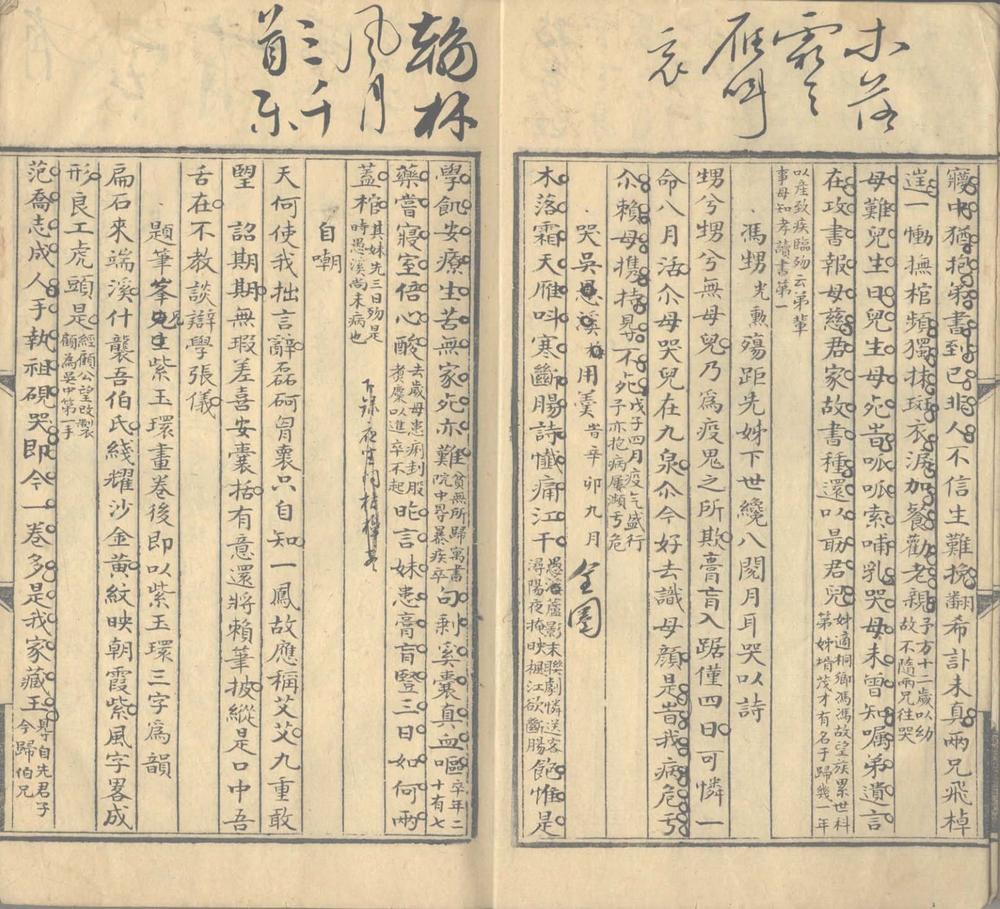 木落
霜天
雁叫
哀
寢中猶抱弟書到已非人不信生難挽翻希訃未真兩兄飛棹
一慟撫棺頻獨抹斑衣淚加餐勸老親予方十二歲以幼故不隨兩兄往哭
母難兒生日兒生母死峕呱呱索哺乳哭母未曾知囑弟遺言
在攻書報母慈君家故書種還以勗君兒姊適桐鄉馮馮故望族累世科第姊壻茂才有名于歸幾一年
以産致疾臨歿云弟輩事母知孝讀書第一
馮甥光勲殤距先姊下世纔八閱月耳哭以詩
甥兮甥兮無母兒乃爲疫鬼之所欺膏肓入踞僅四日可憐一
命八月活尒母哭兒在九泉尒今好去識母顏是峕我病危亏
尒賴母攜持㝵不死戊子四月疫气盛行予亦抱病屢瀕亏危
哭吳愚溪用羹峕辛卯九月
全圈
木落霜天雁叫寒斷腸詩懺痛江干愚溪蘆影末聯劇憐送客潯陽夜掩映楓江欲斷腸飽惟是
翰林
風月
三千
首
學飢安療生苦無家死亦難貧無所歸寓書院中㝵暴疾卒句剩奚囊真血嘔卒年二十有七
藥嘗寢室倍心酸去歲母患痢刲股煑糜以進卒不起昨言妹患膏肓豎三日如何兩
蓋棺其妹先三日歿是時愚溪尚未病也
自嘲
天何使我拙言辭磊砢胷襄只自知一鳳故應稱艾艾九重敢
朢詔期期無瑕差喜安囊括有意還將賴筆披縱是口中吾
舌在不教談辯學張儀
題筆峯兄紫玉環畫卷後即以紫玉環三字爲韻
扁石來端溪什襲吾伯氏綫耀沙金黃紋映朝霞紫風字畧成
形良工虎頭是經顧公望改製顧爲吳中第一手
范喬志成人手執祖硯哭即今一卷多是我家藏玉㝵自先君子今歸伯兄